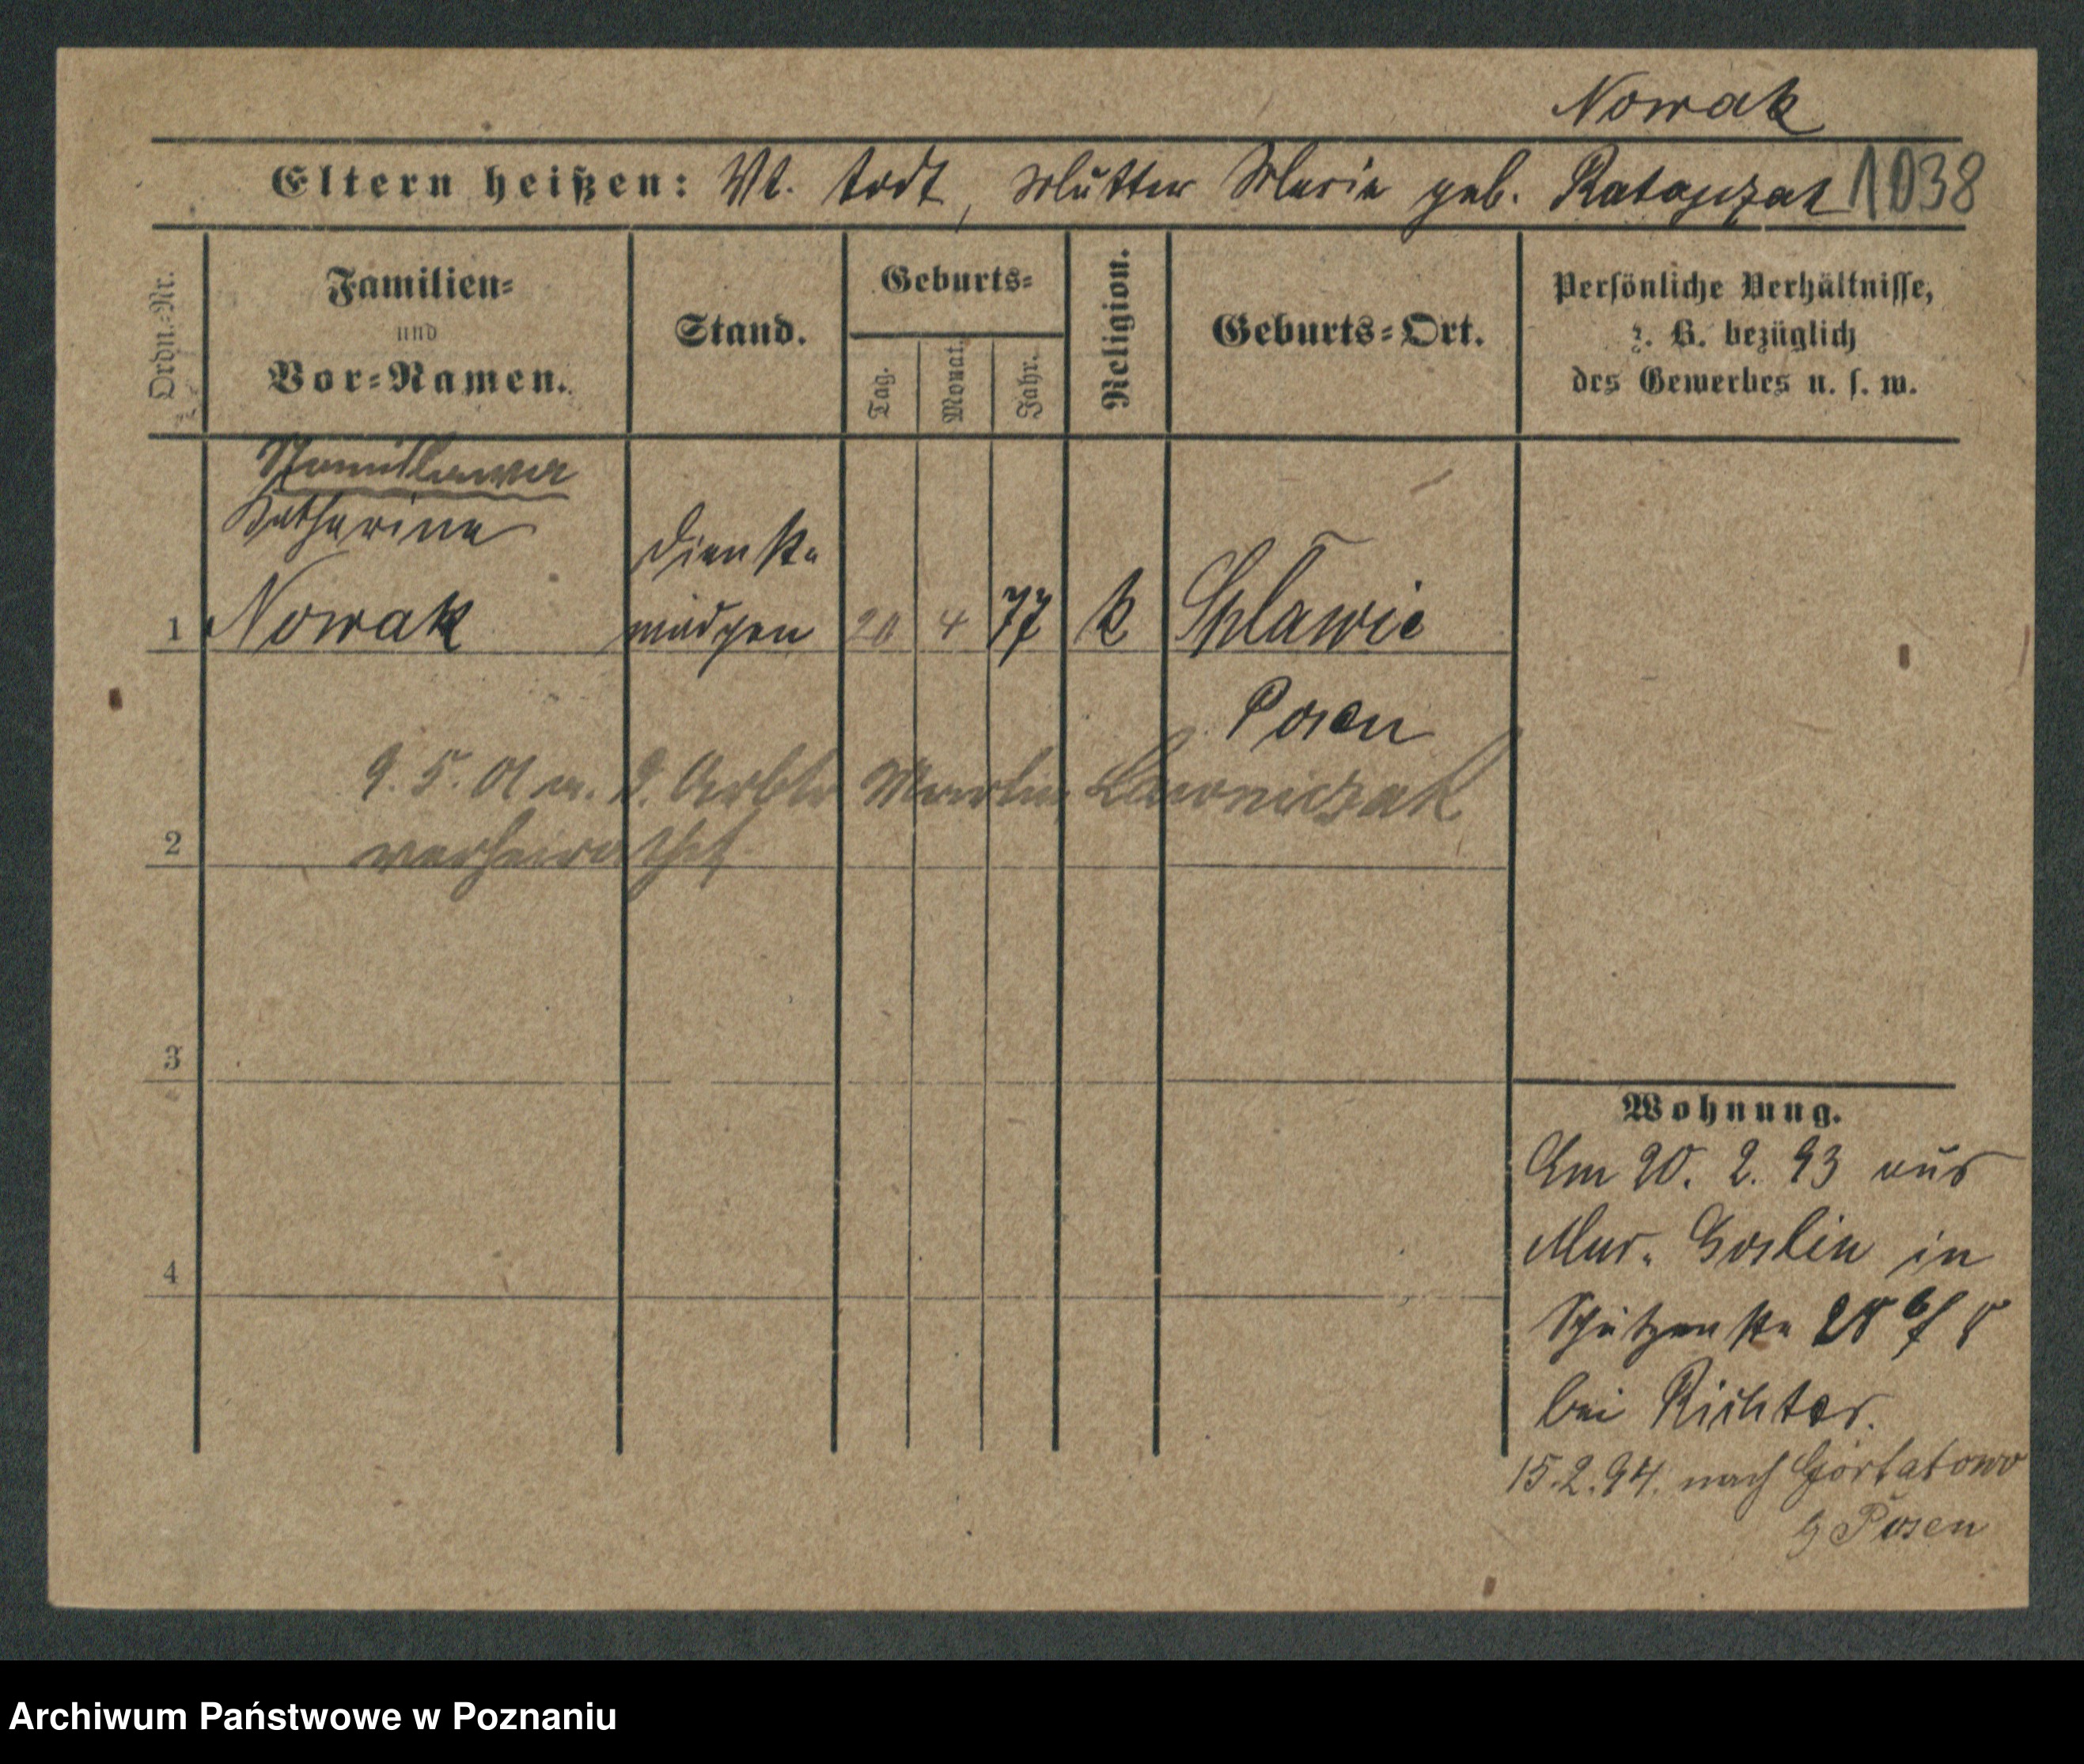 Nowak
Eltern heißen: Vt. todt, Mutter Marie geb. Ratajczak 1038
Ordn.-Nr.
Familien-
und
Vor-Namen.
Stand.
Geburts-
Tag.
Monat.
Jahr.
Religion.
Geburts-Ort.
Persönliche Verhältnisse,
z. B. bezüglich
des Gewerbes u. s. w.
Stanislawa
Katharine
Dienst-
1 Nowak mädchen 20 4 77 k
Posen
9. 5. 01 m. d. Arbtr Martin Lawniczak
2 verheirathet
3
4
Wohnung.
Am 20. 2. 93 aus
Mur. Goslin in
Schützenstr
bei Richter.
15.2.94. nach Gortatowo
Posen
Archiwum Państwowe w Poznaniu